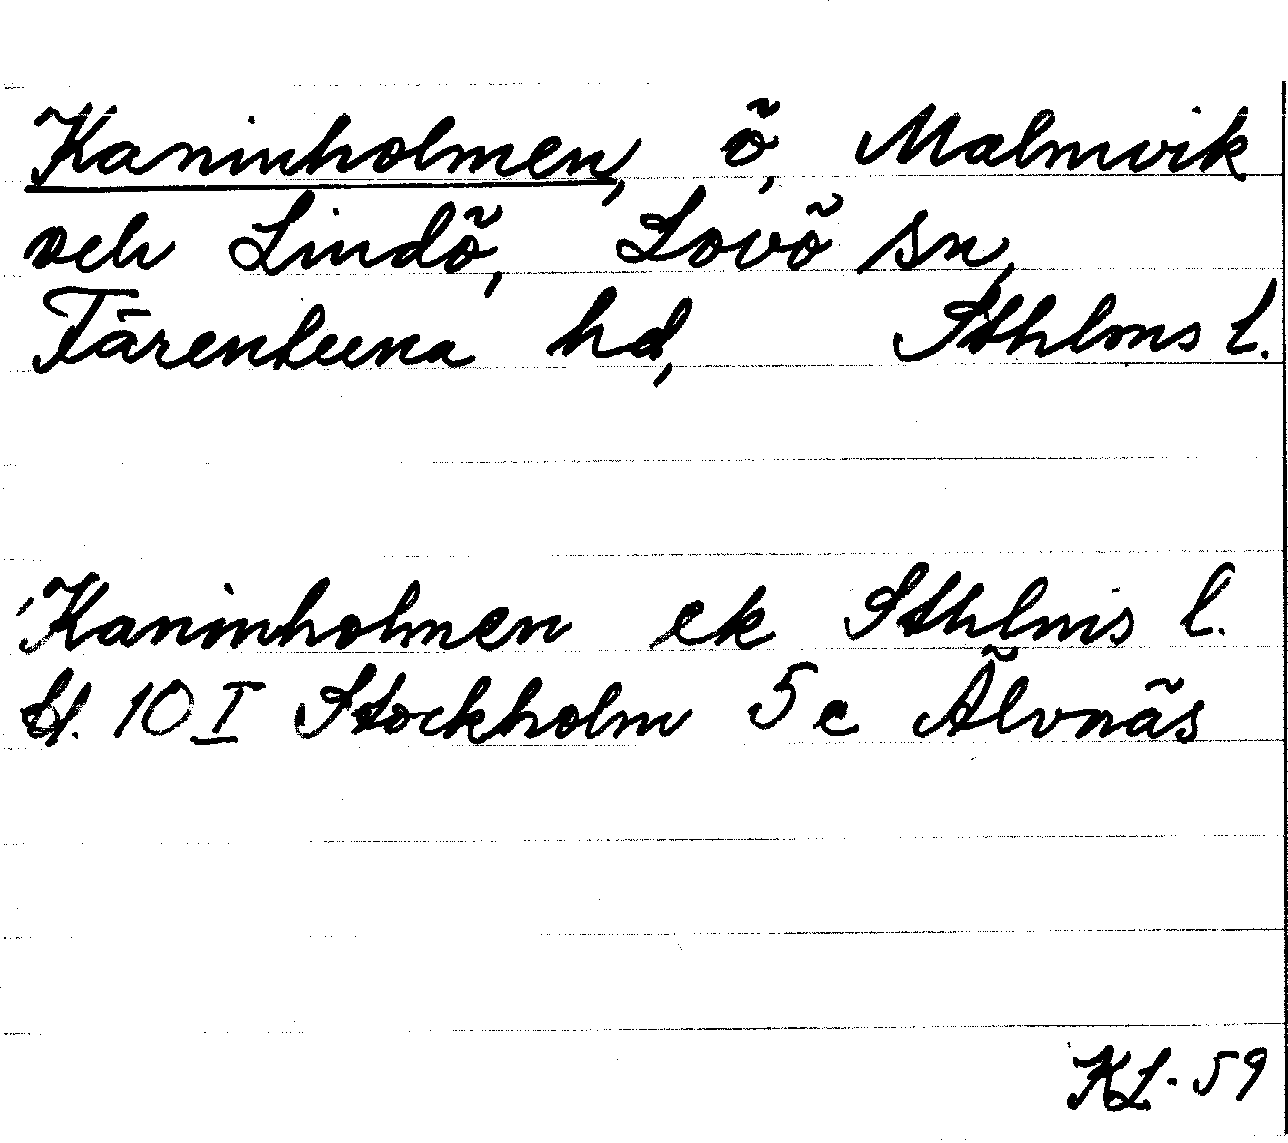 Kaninholmen, ö, Malmvik
och Lindö, Lovö sn,
Färentuna hd, Sthlms l.
Kaninholmen ek Sthlms l.
bl. 10 I Stockholm 5 c Älvnäs
KL. 59